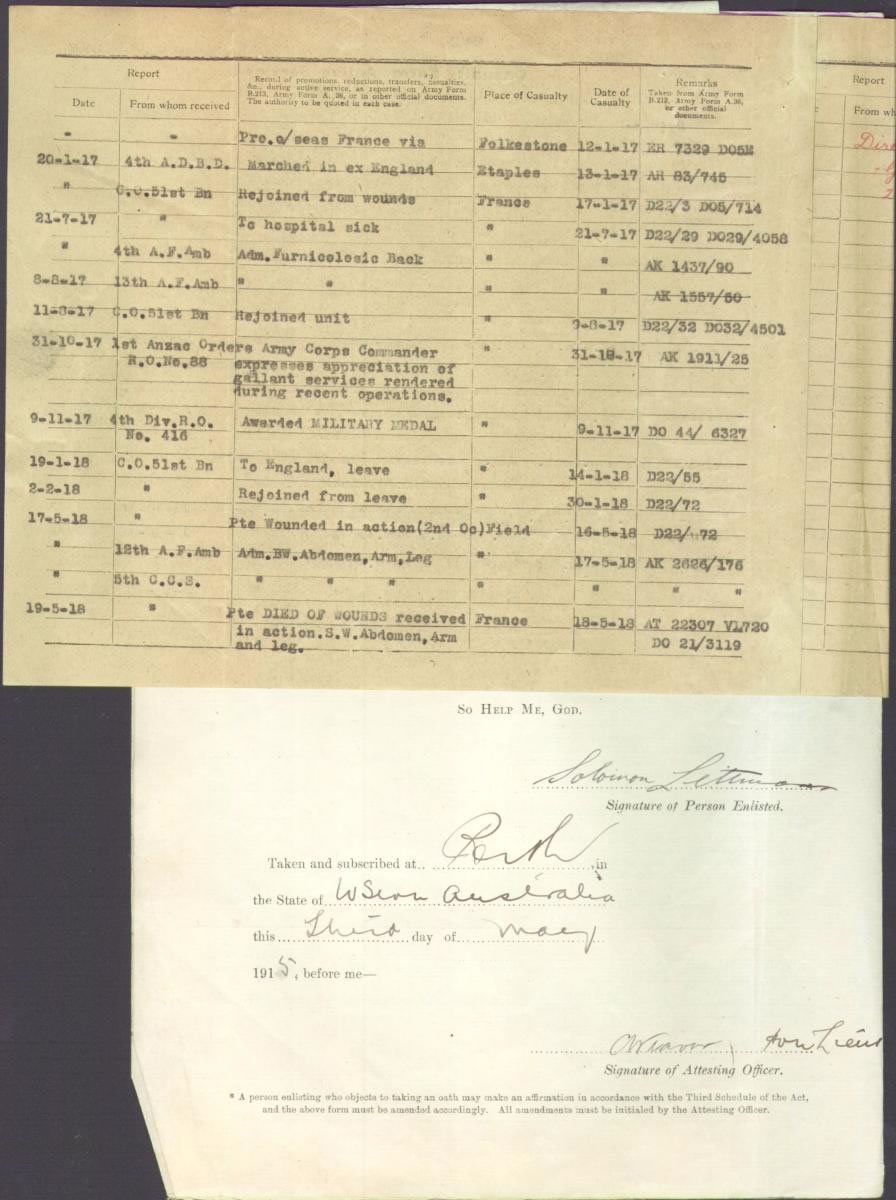 Report
Record of promotions, reductions, transfers, casualties,
&c., during active service, as reported on Army Form
B.213, Army Form A.36, or in other official documents.
The authority to be quoted in each case.
Place of Casualty
Date of
Casualty
Remarks
Taken from Army Form
B.213, Army Form A.36,
or other official
documents.
Report
Date From whom received
From wh
" " Pro.o/seas France via Folkestone 12-1-17 ER 7329 DO5E
20-1-17 4th A.D.B.D. Marched in ex England Etaples 13-1-17 AR 83/745
" C.O.51st Bn Rejoined from wounds France 17-1-17 D22/3 DO5/714
21-7-17 " To hospital sick " 21-7-17 D22/29 DO29/4058
" 4th A.F.Amb Adm.Furnicolosic Back " " AK 1437/90
8-8-17 13th A.F.Amb " " " " AK 1557/50
11-8-17 C.O.51st Bn Rejoined unit " 9-8-17 D22/32 DO32/4501
31-10-17 1st Anzac Orders Army Corps Commander " 31-10-17 AK 1911/25
R.O.No.88 expresses appreciation of
gallant services rendered
during recent operations.
9-11-17 4th Div.R.O. Awarded MILITARY MEDAL " 9-11-17 DO 44/ 6327
No. 416
19-1-18 C.O.51st Bn To England, leave " 14-1-18 D22/55
2-2-18 " Rejoined from leave " 30-1-18 D22/72
17-5-18 " Pte Wounded in action(2nd Oc)Field 16-5-18 D22/ 72
" 12th A.F.Amb Adm.BW.Abdomen,Arm,Leg " 17-5-18 AK 2626/176
" 5th C.C.S. " " " " " " "
19-5-18 " Pte DIED OF WOUNDS received France 18-5-18 AT 22307 VL720
in action.S.W.Abdomen,Arm DO 21/3119
and leg.
So Help Me, God.
Solomon Littman
Signature of Person Enlisted.
Taken and subscribed at Perth, in
the State of WSern Australia
this Third day of May
1915, before me—
Hon Lieut
Signature of Attesting Officer.
* A person enlisting who objects to taking an oath may make an affirmation in accordance with the Third Schedule of the Act,
and the above form must be amended accordingly. All amendments must be initialed by the Attesting Officer.